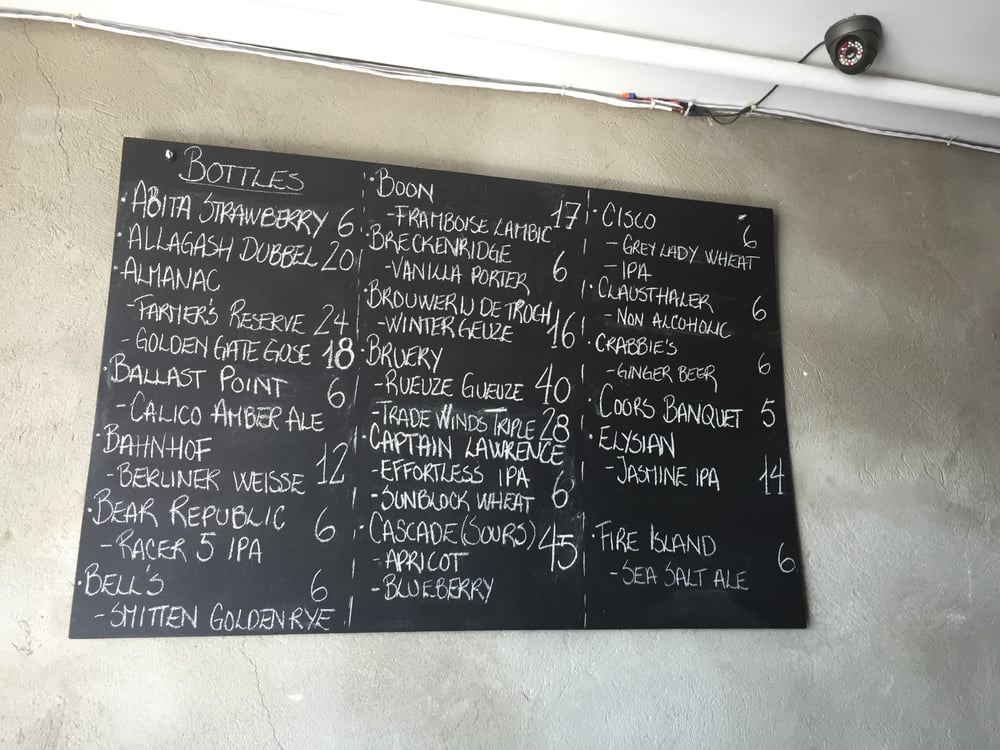 BOTTLES
·ABITA STRAWBERRY 6
·ALLAGASH DUBBEL 20
·ALMANAC
-FARMER'S RESERVE 24
-GOLDEN GATE GOSE 18
·BALLAST POINT 6
-CALICO AMBER ALE
·BAHNHOF
-BERLINER WEISSE 12
·BEAR REPUBLIC 6
-RACER 5 IPA
·BELL'S 6
-SMITTEN GOLDEN RYE
·BOON
-FRAMBOISE LAMBIC 17
·BRECKENRIDGE
-VANILLA PORTER 6
·BROUWERIJ DE TROCH
-WINTER GEUZE 16
·BRUERY
-RUEUZE GUEUZE 40
-TRADE WINDS TRIPLE 28
·CAPTAIN LAWRENCE
-EFFORTLESS IPA
-SUNBLOCK WHEAT 6
·CASCADE (SOURS) 45
-APRICOT
-BLUEBERRY
·CISCO 6
-GREY LADY WHEAT
-IPA
·CLAUSTHALER 6
-NON ALCOHOLIC
·CRABBIE'S 6
-GINGER BEER
·COORS BANQUET 5
·ELYSIAN
-JASMINE IPA 14
·FIRE ISLAND 6
-SEA SALT ALE